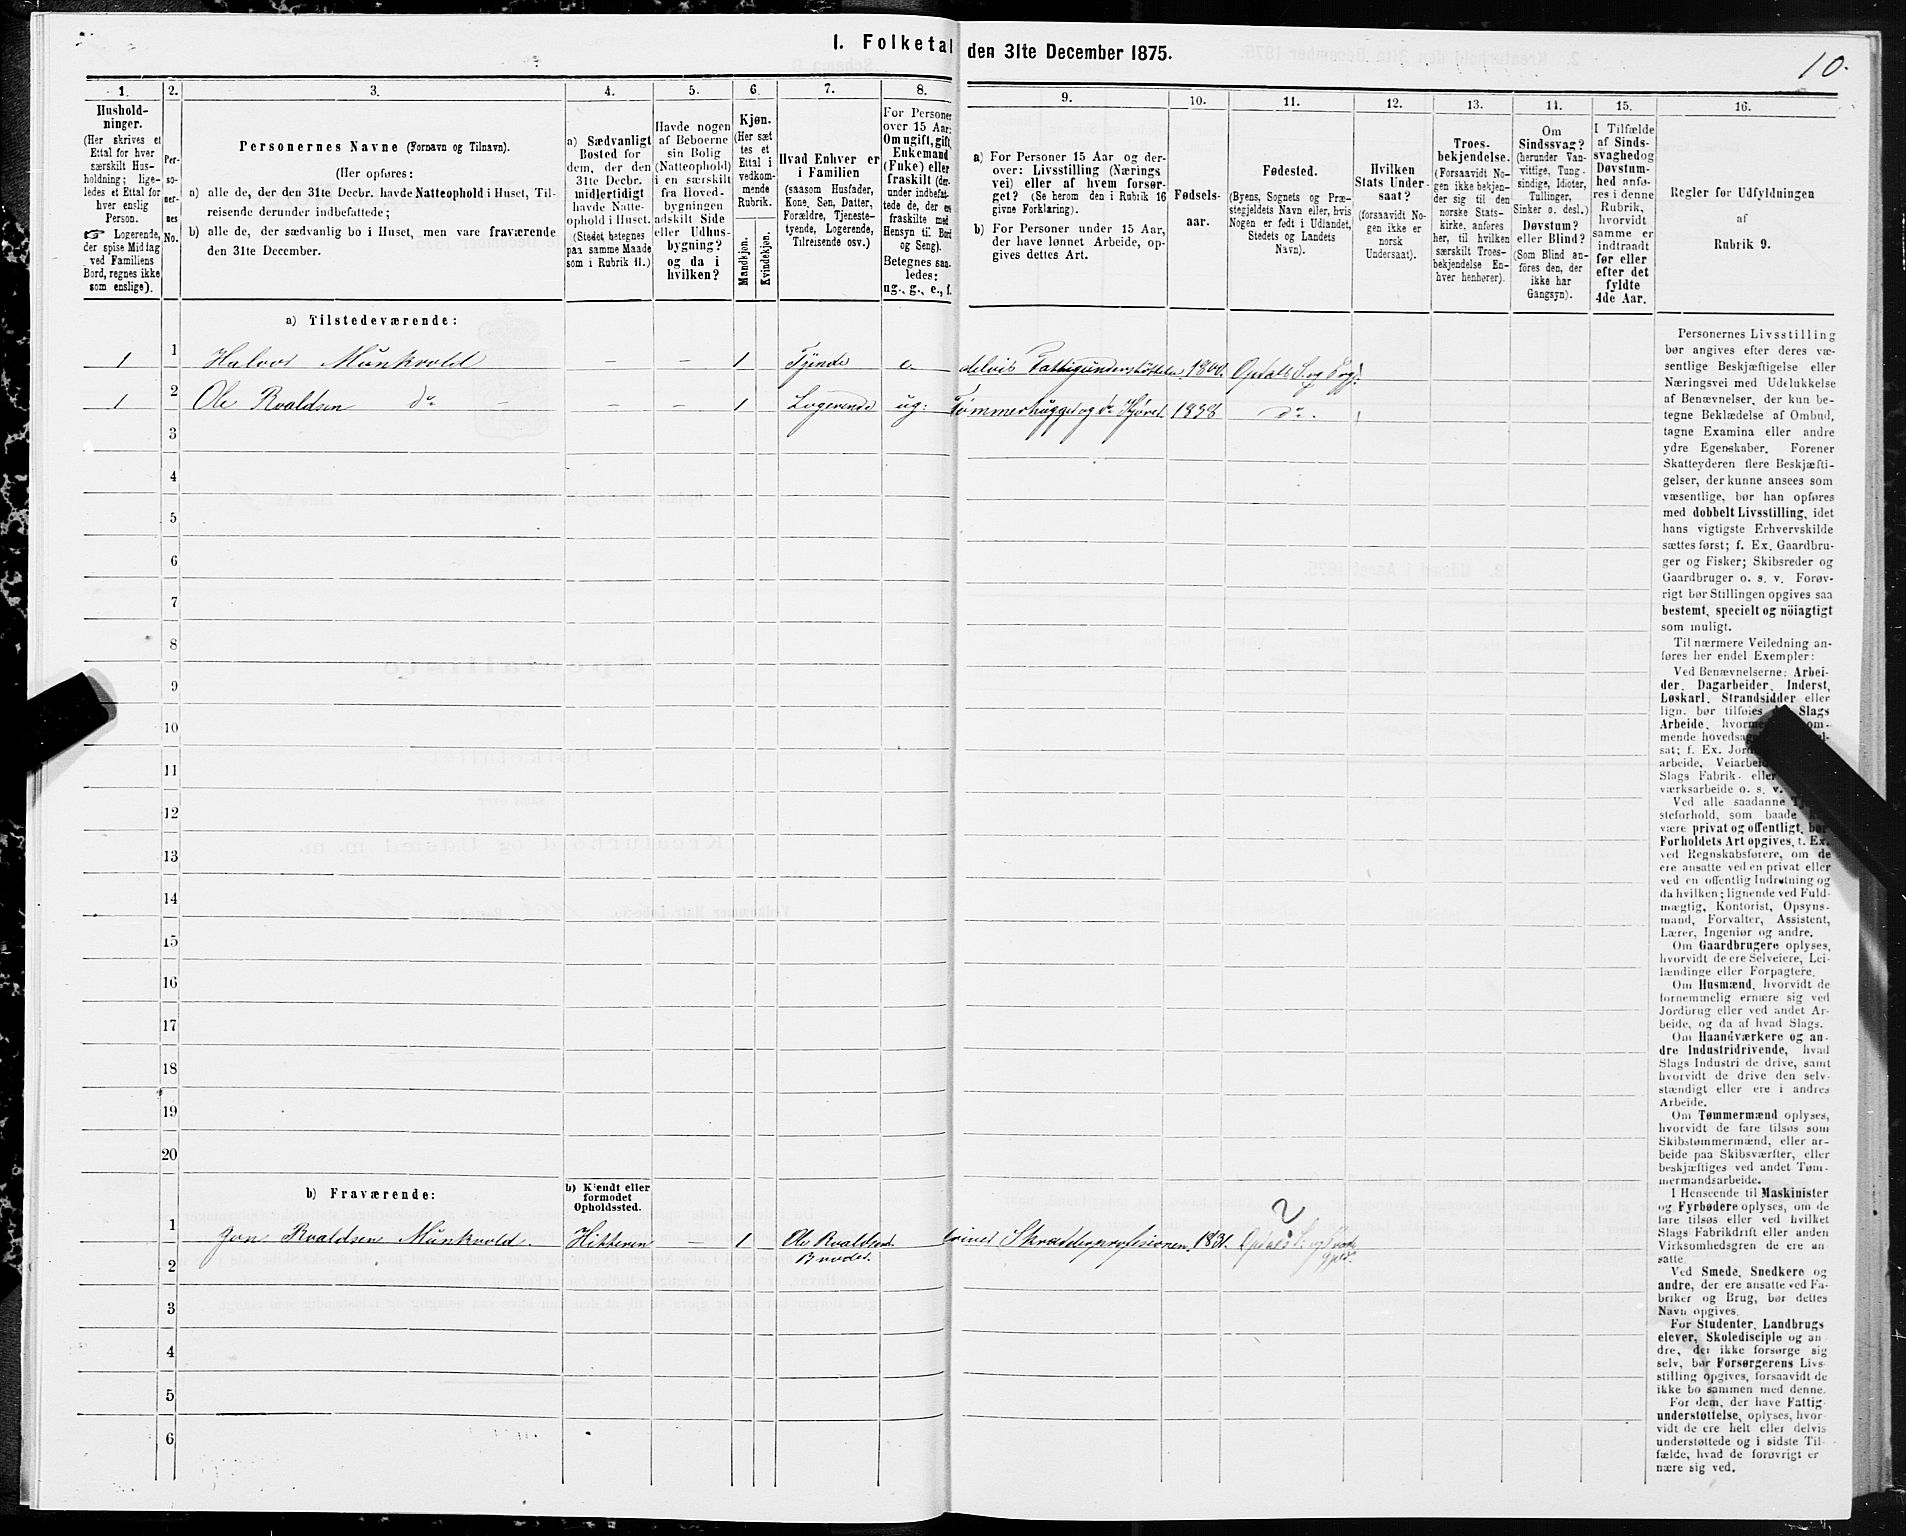 1. Folketal den 31te December 1875.
10.
1.
Hushold-
ninger.
(Her skrives et
Ettal for hver
særskilt Hus-
holdning; lige-
ledes et Ettal for
hver enslig
Person.
☞ Logerende,
der spise Middag
ved Familiens
Bord, regnes ikke
som enslige).
2.
Per-
so-
ner-
nes
No.
3.
Personernes Navne (Fornavn og Tilnavn).
(Her opføres:
a) alle de, der den 31te Decbr. havde Natteophold i Huset, Til-
reisende derunder indbefattede;
b) alle de, der sædvanlig bo i Huset, men vare fraværende
den 31te December.
4.
a) Sædvanligt
Bosted for
dem, der den
31te Decbr.
midlertidigt
havde Natte-
ophold i Huset.
(Stedet betegnes
paa samme Maade
som i Rubrik 11.)
5.
Havde nogen
af Beboerne
sin Bolig
(Natteophold)
i en særskilt
fra Hoved-
bygningen
adskilt Side
eller Udhus-
bygning?
og da i
hvilken?
6.
Kjøn.
(Her sæt
tes et
Ettal i
vedkom-
mende
Rubrik.
Mandkjøn.
Kvindekjøn.
7.
Hvad Enhver er
i Familien
(saasom Husfader,
Kone, Søn, Datter,
Forældre, Tjeneste-
tyende, Logerende,
Tilreisende osv.)
8.
For Personer
over 15 Aar:
Om ugift, gift,
Enkemand
(Enke) eller
fraskilt (der-
under indbefat-
tede de, der ere
fraskilte med
Hensyn til Bord
og Seng).
Betegnes saa-
ledes:
ug., g., e., f.
9.
a) For Personer 15 Aar og der-
over: Livsstilling (Nærings
vei) eller af hvem forsør-
get? (Se herom den i Rubrik 16
givne Forklaring).
b) For Personer under 15 Aar,
der have lønnet Arbeide, op-
gives dettes Art.
10.
Fødsels-
aar.
11.
Fødested.
(Byens, Sognets og Præ-
stegjeldets Navn eller, hvis
Nogen er født i Udlandet,
Stedets og Landets
Navn).
12.
Hvilken
Stats Under-
saat?
(forsaavidt No-
gen ikke er
norsk
Undersaat).
13.
Troes-
bekjendelse.
(Forsaavidt No-
gen ikke bekjen-
der sig til den
norske Stats-
kirke, anføres
her, til hvilken
særskilt Troes-
bekjendelse En-
hver henhører).
14.
Om
Sindssvag?
(herunder Van-
vittige, Tung-
sindige, Idioter,
Tullinger,
Sinker o. desl.)
Døvstum?
eller Blind?
(Som Blind an-
føres den, der
ikke har
Gangsyn).
15.
I Tilfælde
af Sinds-
svaghed og
Døvstum-
hed anfø-
res i denne
Rubrik,
hvorvidt
samme er
indtraadt
før eller
efter det
fyldte
4de Aar.
16.
Regler for Udfyldningen
af
Rubrik 9.
a) Tilstedeværende:
1 1 Halvor Munkvold – – 1 Tyende e. delvis Fattigunderstøttelse. 1800. Opdals S. og Prgj:
1 2 Ole Roaldsen do – – 1 Logerende ug: Tømmerhugger og do Kjører. 1838 do.
3
4
5
6
7
8
9
10
11
12
13
14
15
16
17
18
19
20
b) Fraværende:
b) Kjendt eller
formodet
Opholdssted.
2
1 Jon Roaldsen Munkvold. Hitteren – 1 Ole Roaldsens Skrædderprofesionen. 1831.
2 Broder.
3
4
5
6
Personernes Livsstilling
bør angives efter deres væ-
sentlige Beskjæftigelse eller
Næringsvei med Udelukkelse
af Benævnelser, der kun be-
tegne Beklædelse af Ombud,
tagne Examina eller andre
ydre Egenskaber. Forener
Skatteyderen flere Beskjæfti-
gelser, der kunne ansees som
væsentlige, bør han opføres
med dobbelt Livsstilling, idet
hans vigtigste Erhvervskilde
sættes først; f. Ex. Gaardbru-
ger og Fisker; Skibsreder og
Gaardbruger o. s. v. Forøv-
rigt bør Stillingen opgives saa
bestemt, specielt og nöiagtigt
som muligt.
Til nærmere Veiledning an-
føres her endel Exempler:
Ved Benævnelserne: Arbei-
der, Dagarbeider, Inderst,
Løskarl, Strandsidder eller
lign. bør tilføies Slags
Arbeide,
mende
sat; f. Ex.
arbeide,
Slags Fabrik- eller
værksarbeide o. s. v.
Ved alle saadanne
steforhold, som baade
være privat og offentligt, bør
Forholdets Art opgives, f. Ex.
ved Regnskabsførere, om de
ere ansatte ved en privat eller
ved en offentlig Indretning og
da hvilken; lignende ved Fuld-
mægtig, Kontorist, Opsyns-
mand, Forvalter, Assistent,
Lærer, Ingeniør og andre.
Om Gaardbrugere oplyses,
hvorvidt de ere Selveiere, Lei-
lændinge eller Forpagtere.
Om Husmænd, hvorvidt de
fornemmelig ernære sig ved
Jordbrug eller ved andet Ar-
beide, og da af hvad Slags.
Om Haandværkere og an-
dre Industridrivende, hvad
Slags Industri de drive, samt
hvorvidt de drive den selv-
stændigt eller ere i andres
Arbeide.
Om Tømmermænd oplyses,
hvorvidt de fare tilsøs som
Skibstømmermænd, eller ar-
beide paa Skibsværfter, eller
beskjæftiges ved andet Tøm-
mermandsarbeide.
I Henseende til Maskinister
og Fyrbødere oplyses, om de
fare tilsøs eller ved hvilket
Slags Fabrikdrift eller anden
Virksomhedsgren de ere an-
satte.
Ved Smede, Snedkere og
andre, der ere ansatte ved Fa-
briker og Brug, bør dettes
Navn opgives.
For Studenter, Landbrugs
elever, Skoledisciple og an
dre, der ikke forsørge sig
selv, bør Forsørgerens Livs-
stilling opgives, forsaavidt de
ikke bo sammen med denne.
For dem, der have Fattig
understøttelse, oplyses, hvor-
vidt de ere helt eller delvis
understøttede og i sidste Til-
fælde, hvad de forøvrigt er
nære sig ved.